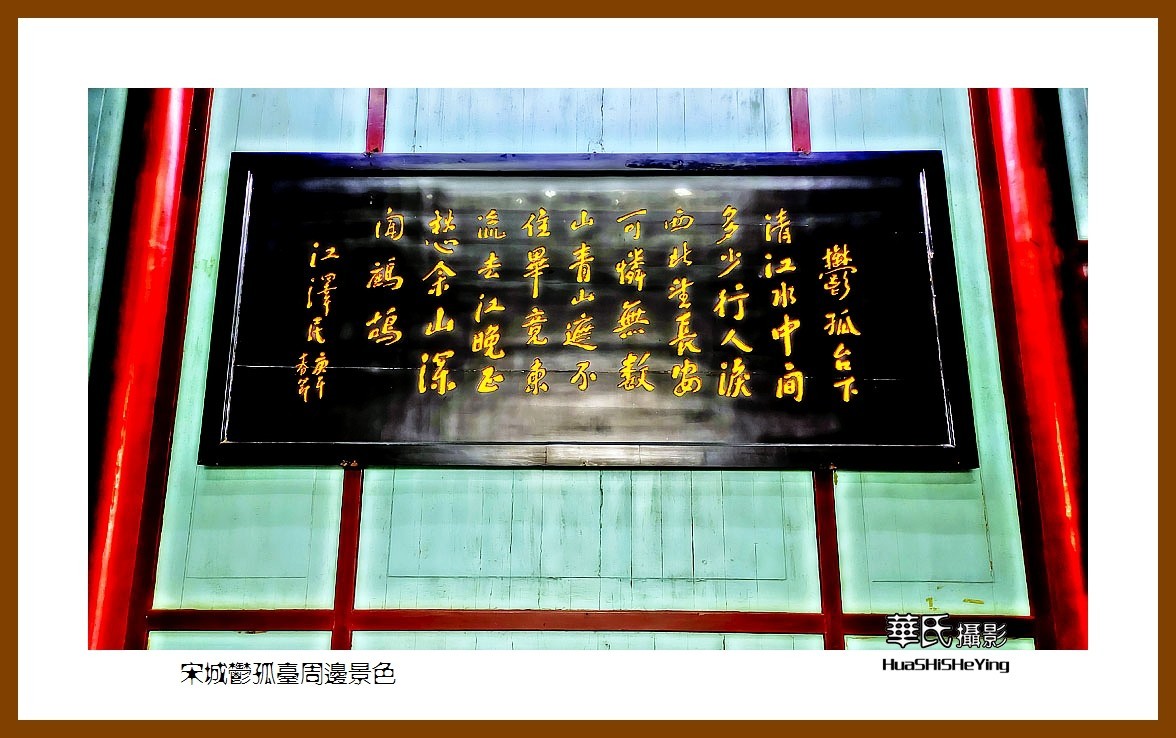 鬱孤台下
清江水中间
多少行人淚
西北望長安
可憐無數
山青山遮不
住畢竟東
流去江晚正
愁余山深
闻鷓鴣
江澤民 庚午
春节
華氏攝影
HuaSHiSHeYing
宋城鬱孤臺周邊景色